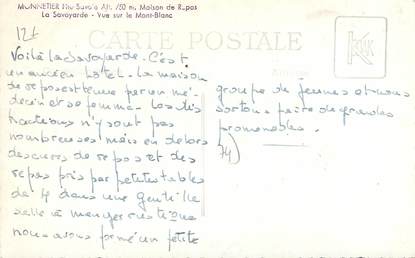 MONNETIER Hte-Savoie Alt. 750 m. Maison de Repos
La Savoyarde - Vue sur le Mont-Blanc
127
CARTE POSTALE
Voilà la Savoyarde. C'est
un ancien hôtel. La maison
de repos est tenue par un mé-
decin et sa femme. Les dis
tractions n'y sont pas
nombreuses mais en dehors
des cures de repos et des
repas pris par petites tables
de 4 dans une gentille
salle à manger rustique
nous avons formé un petit
groupe de jeunes et nous
sortons faire de grandes
promenades.
74)
K